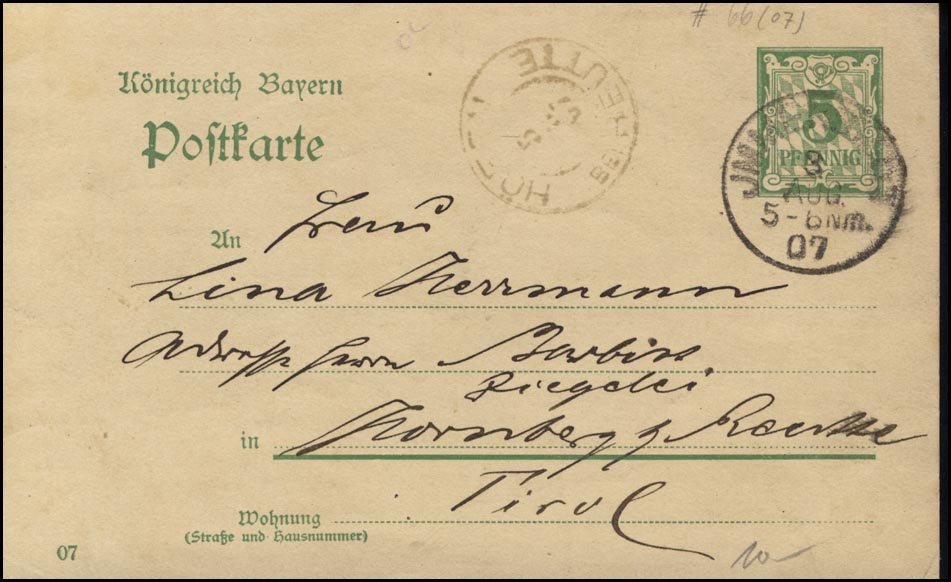 # 66 (07)
Königreich Bayern
Postkarte
5
PFENNIG
3
AUG.
5-6 Nm.
07
REUTTE
An Frau
Lina Herrmann
Adresse Herrn
Ziegelei
in
Tirol
Wohnung
(Straße und Hausnummer)
07
10